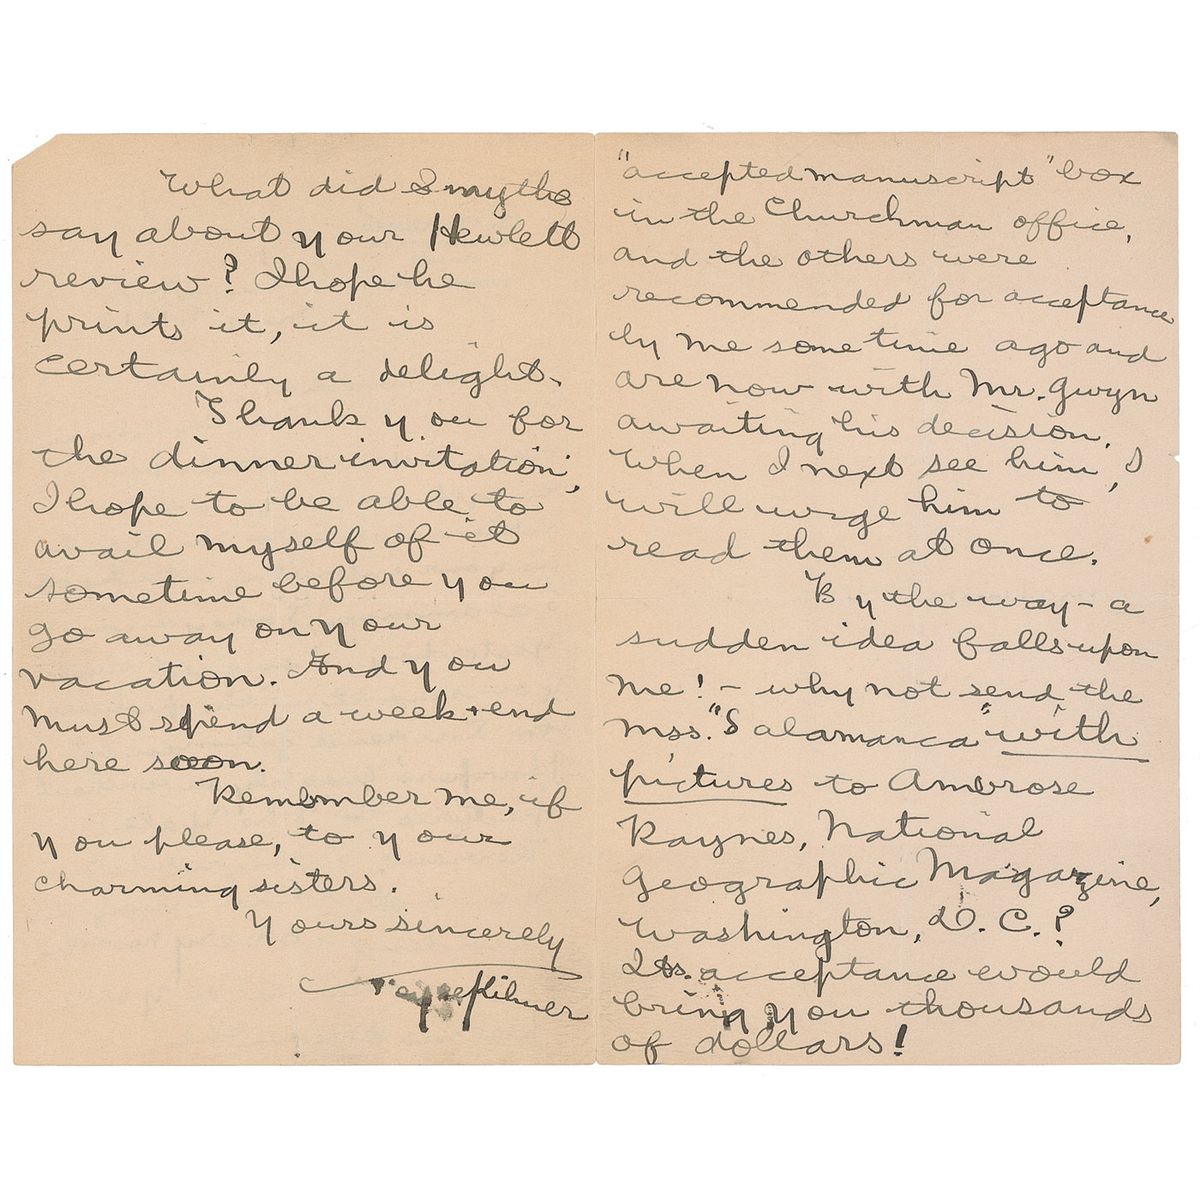 What did Smythe
say about your Hewlett
review? I hope he
prints it, it is
certainly a delight.
Thank you for
the dinner invitation,
I hope to be able to
avail myself of it
sometime before you
go away on your
vacation. And you
must spend a week-end
here soon.
Remember me, if
you please, to your
charming sisters.
Yours sincerely
Joyce Kilmer
"accepted manuscript" box
in the Churchman office,
and the others were
recommended for acceptance
by me some time ago and
are now with Mr. Gwyn
awaiting his decision.
When I next see him, I
will urge him to
read them at once.
By the way - a
sudden idea falls upon
me! - why not send the
mss. "Salamanca" with
pictures to Ambrose
Raynes, National
Geographic Magazine,
Washington, D.C.?
Its acceptance would
bring you thousands
of dollars!